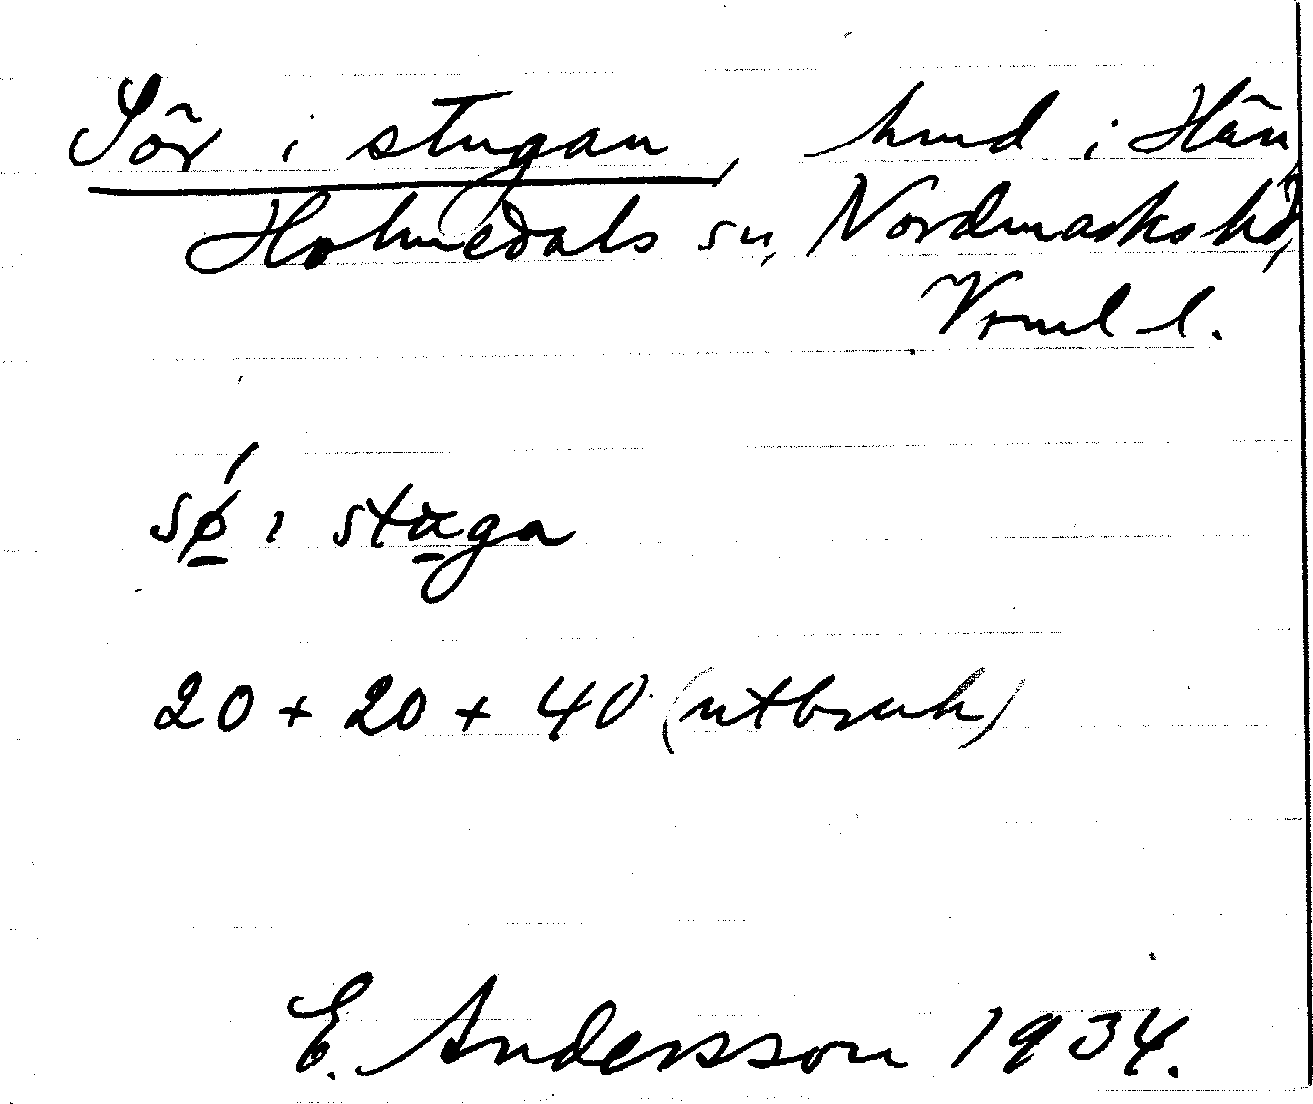 Sör i stugan, hmd i Hän,
Holmedals sn, Nordmarks hd,
Vrml l.
sǿ̱ i sta̱ga
20 + 20 + 40 (utbruk)
E. Andersson 1934.